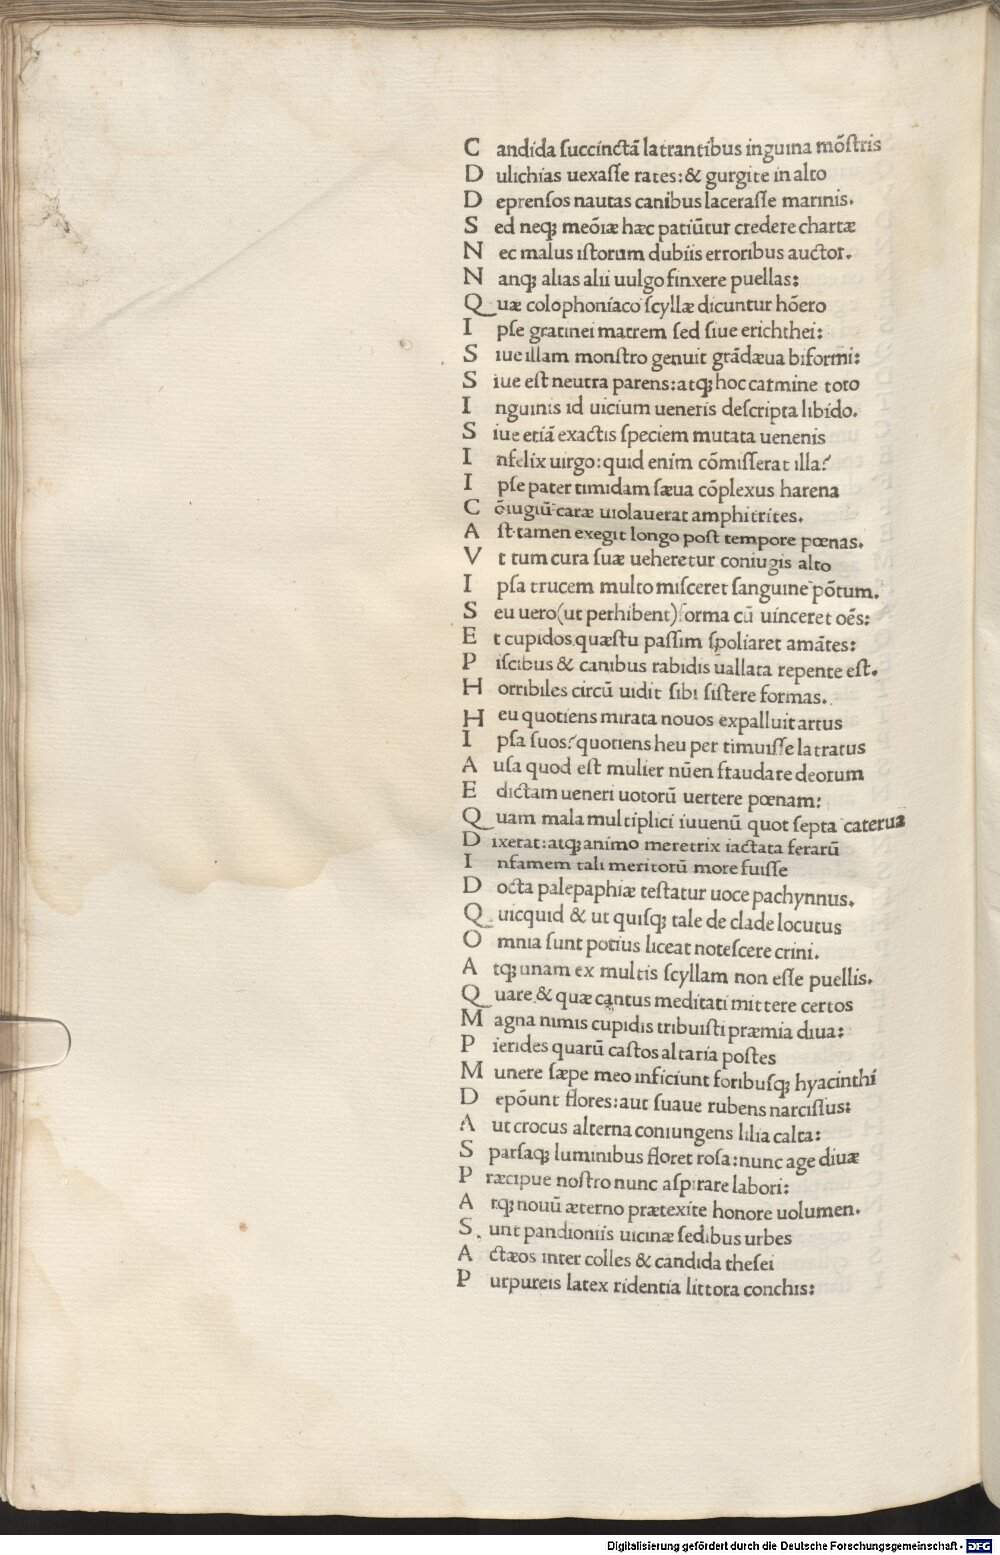 C andida ſuccinctã latrantibus inguina mõſtris
D ulichias uexaſſe rates: & gurgite in alto
D eprenſos nautas canibus laceraſſe marinis.
S ed neqꝫ meõiæ hæc patiũtur credere chartæ
N ec malus iſtorum dubiis erroribus auctor.
N anqꝫ alias alii uulgo finxere puellas:
Q uæ colophoniaco ſcyllæ dicuntur hõero
I pſe gratinei matrem ſed ſiue erichthei:
S iue illam monſtro genuit grãdæua biformi:
S iue eſt neutra parens: atqꝫ hoc carmine toto
I nguinis id uicium ueneris deſcripta libido.
S iue etiã exactis ſpeciem mutata uenenis
I nfelix uirgo: quid enim cõmiſſerat illa?
I pſe pater timidam ſæua cõplexus harena
C õiugiũ caræ uiolauerat amphitrites.
A ſt tamen exegit longo poſt tempore pœnas.
V t tum cura ſuæ ueheretur coniugis alto
I pſa trucem multo miſceret ſanguine põtum.
S eu uero (ut perhibent) forma cũ uinceret oẽs:
E t cupidos quæſtu paſſim ſpoliaret amãtes:
P iſcibus & canibus rabidis uallata repente eſt.
H orribiles circũ uidit ſibi ſiſtere formas.
H eu quotiens mirata nouos expalluit artus
I pſa ſuos? quotiens heu per timuiſſe latratus
A uſa quod eſt mulier nũen fraudare deorum
E dictam ueneri uotorũ uertere pœnam:
Q uam mala multiplici iuuenũ quot ſepta caterua
D ixerat: atqꝫ animo meretrix iactata ferarũ
I nfamem tali meritorũ more fuiſſe
D octa palepaphiæ teſtatur uoce pachynnus.
Q uicquid & ut quiſqꝫ tale de clade locutus
O mnia ſunt potius liceat noteſcere crini.
A tqꝫ unam ex multis ſcyllam non eſſe puellis.
Q uare & quæ cantus meditati mittere certos
M agna nimis cupidis tribuiſti præmia diua:
P ierides quarũ caſtos altaria poſtes
M unere ſæpe meo inficiunt foribuſqꝫ hyacinthi
D epõunt flores: aut ſuaue rubens narciſſus:
A ut crocus alterna coniungens lilia calta:
S parſaqꝫ luminibus floret roſa: nunc age diuæ
P ræcipue noſtro nunc aſpirare labori:
A tqꝫ nouũ æterno prætexite honore uolumen.
S unt pandioniis uicinæ ſedibus urbes
A ctæos inter colles & candida theſei
P urpureis latex ridentia littora conchis:
Digitalisierung gefördert durch die Deutsche Forschungsgemeinschaft - DFG